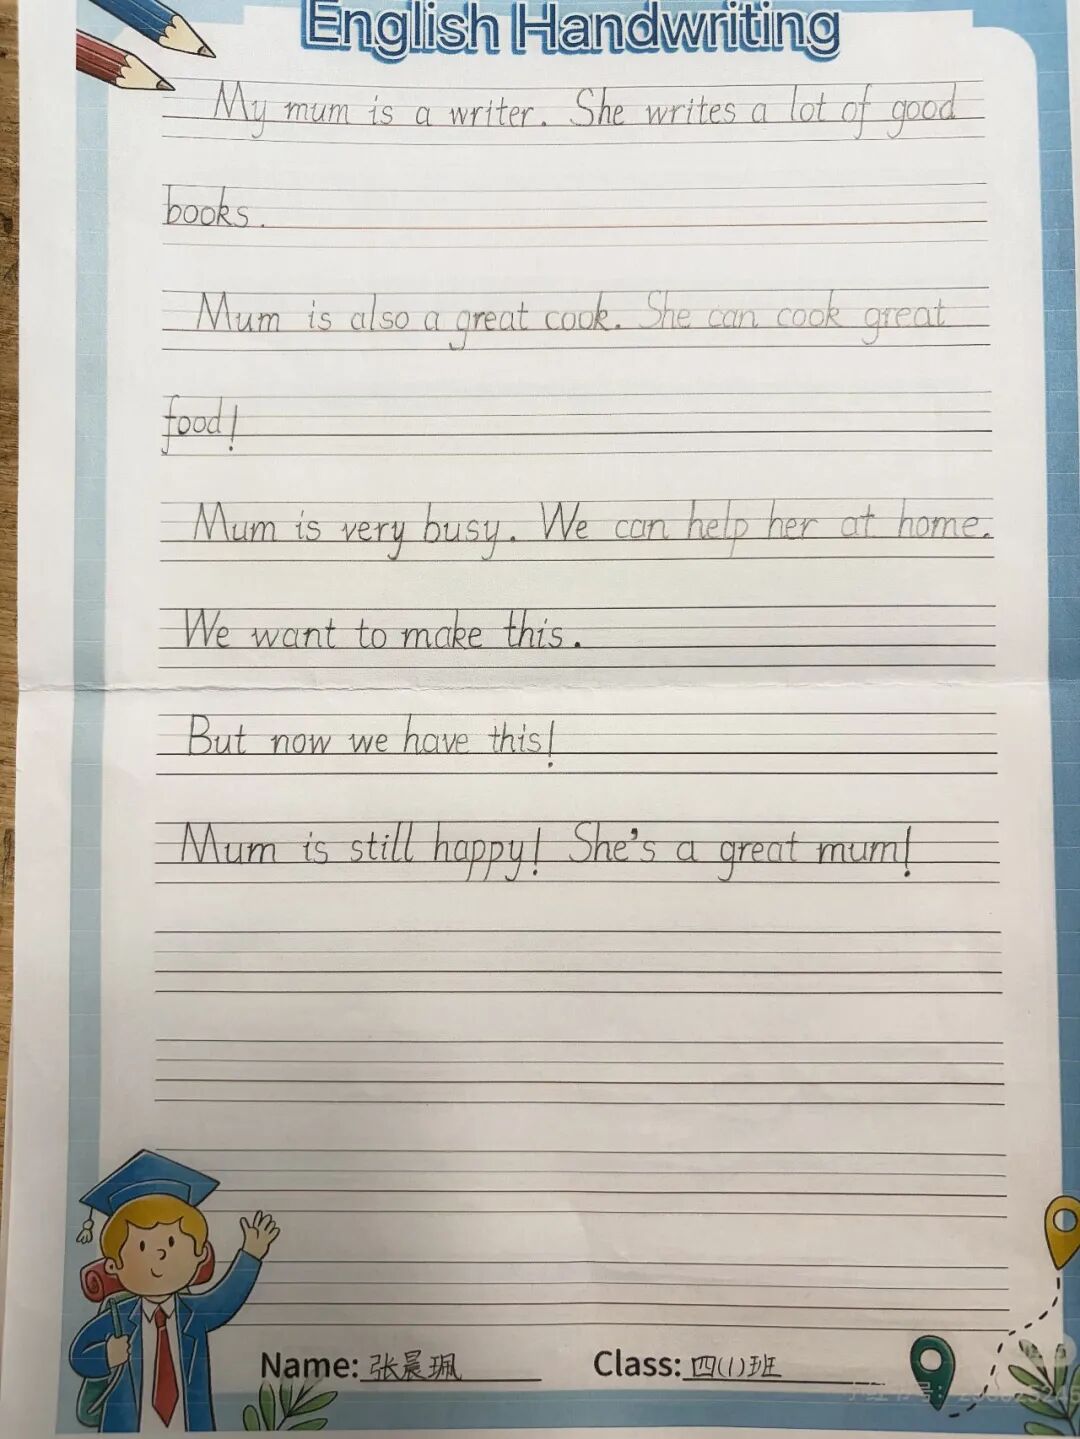 English Handwriting
My mum is a writer. She writes a lot of good
books.
Mum is also a great cook. She can cook great
food!
Mum is very busy. We can help her at home.
We want to make this.
But now we have this!
Mum is still happy! She's a great mum!
Name: 张晨珮 Class: 四(1)班